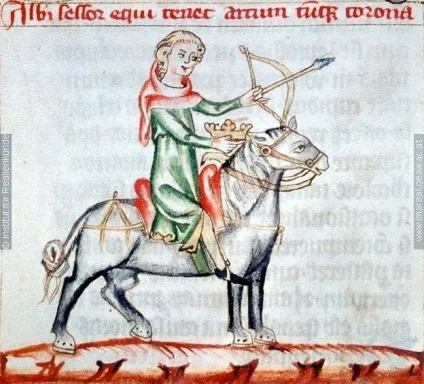 Albi sessor equi tenet arcum coronā
© Institut für Realienkunde
www.imareal.oeaw.ac.at